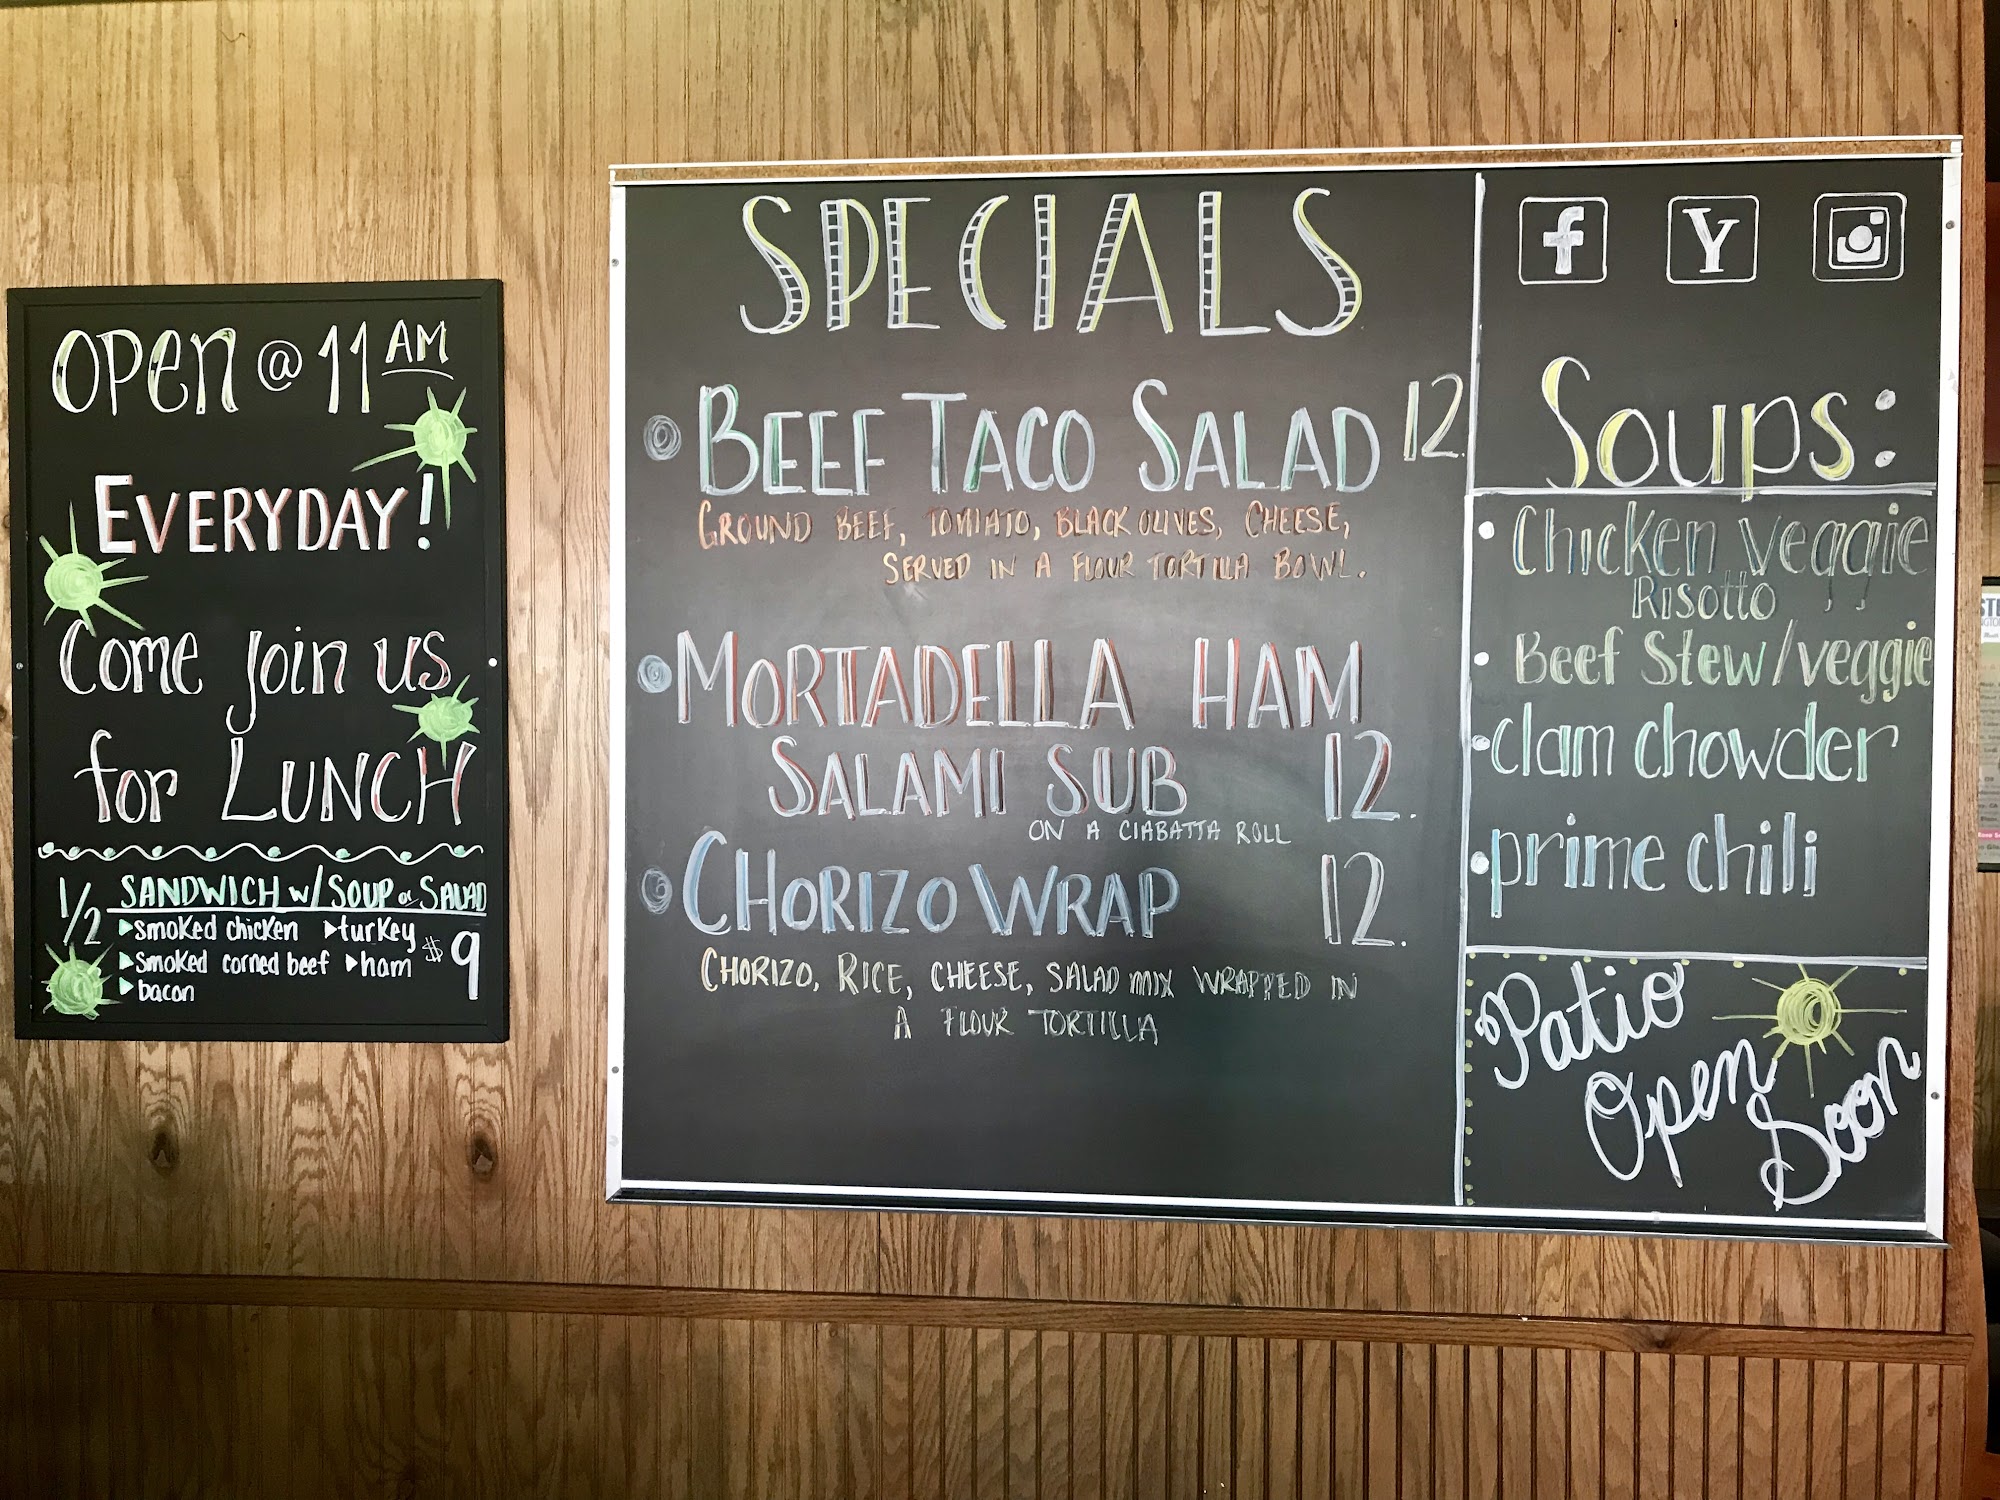 OPEN @ 11 AM
EVERYDAY!
Come join us
for LUNCH
1/2 SANDWICH w/ SOUP or SALAD
smoked chicken turkey
smoked corned beef ham
bacon
$9
SPECIALS
BEEF TACO SALAD 12.
GROUND BEEF, TOMATO, BLACK OLIVES, CHEESE,
SERVED IN A FLOUR TORTILLA BOWL.
MORTADELLA HAM
SALAMI SUB 12.
ON A CIABATTA ROLL
CHORIZO WRAP 12.
CHORIZO, RICE, CHEESE, SALAD MIX WRAPPED IN
A FLOUR TORTILLA
f Y
Soups:
Chicken Veggie
Risotto
Beef Stew/veggie
clam chowder
prime chili
Patio
Open
Soon